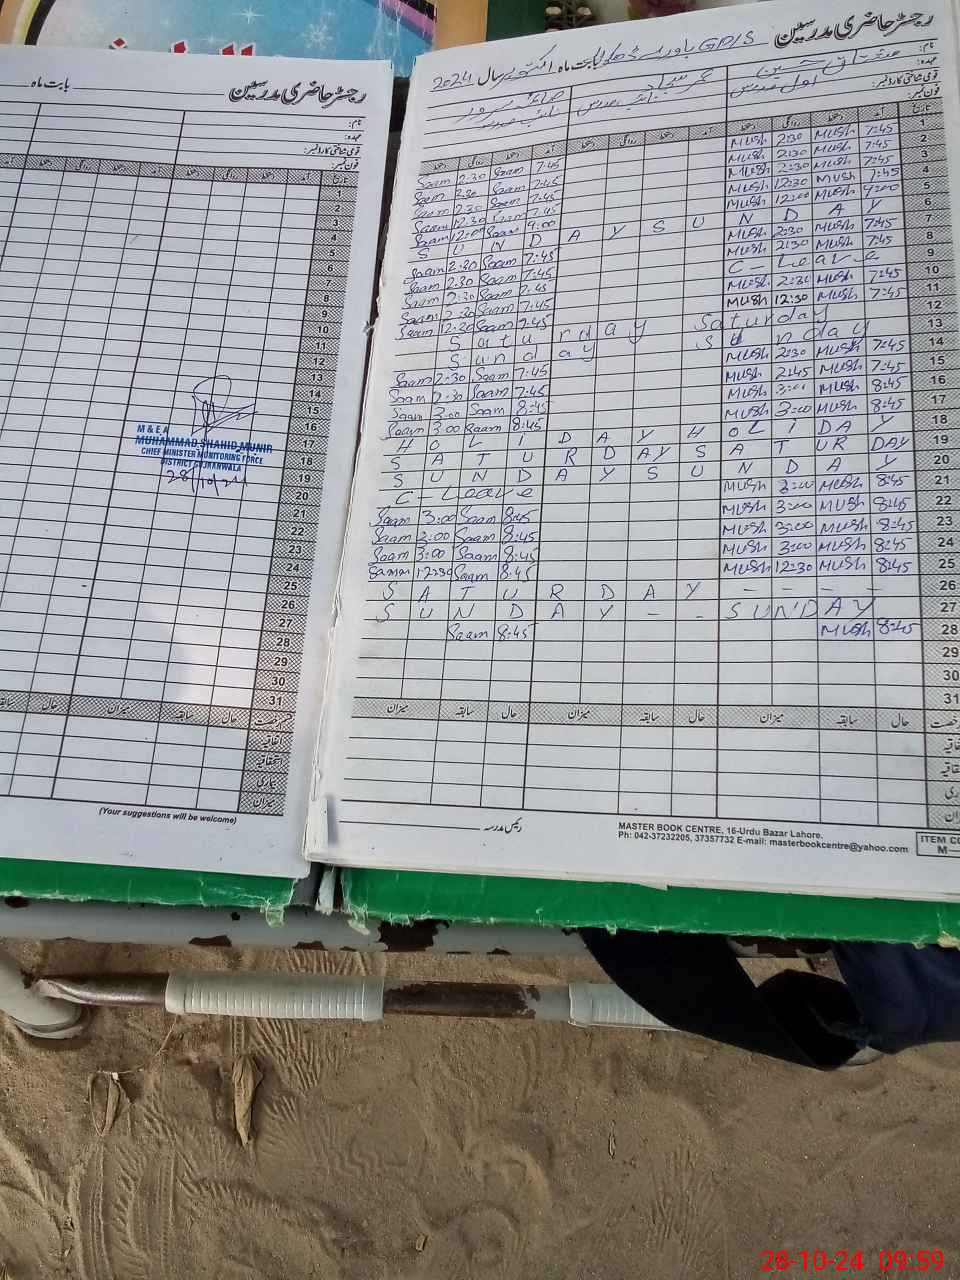 رجسٹر حاضری مدرسین
بابت ماہ
نام:
عہدہ:
قومی شناختی کارڈ نمبر:
فون نمبر:
تاریخ
آمد دستخط روانگی دستخط آمد دستخط روانگی دستخط
1
2
3
4
5
6
7
8
9
10
11
12
13
14
15
16
17
18
19
20
21
22
23
24
25
26
27
28
29
30
31
M & E A
MUHAMMAD SHAHID MUNIR
CHIEF MINISTER MONITORING FORCE
DISTRICT GUJRANWALA
28/10/24
حال سابقہ میزان حال سابقہ
اتفاقیہ
استحقاقیہ
بیماری
میزان
(Your suggestions will be welcome)
رجسٹر حاضری مدرسین
GPS بابت ماہ اکتوبر سال 2024
نام:
عہدہ: اول مدرس نائب مدرس
قومی شناختی کارڈ نمبر:
فون نمبر:
تاریخ آمد دستخط روانگی دستخط آمد دستخط روانگی دستخط آمد دستخط روانگی دستخط
1 7:45 Mush 2:30 Mush 7:45 Saam 2:30 Saam
2 7:45 Mush 2:30 Mush 7:45 Saam 2:30 Saam
3 7:45 Mush 2:30 Mush 7:45 Saam 2:30 Saam
4 7:45 Mush 12:30 Mush 7:45 Saam 12:30 Saam
5 9:00 Mush 12:00 Mush 9:00 Saam 12:00 Saam
6 S U N D A Y S U N D A Y
7 7:45 Mush 2:30 Mush 7:45 Saam 2:30 Saam
8 7:45 Mush 2:30 Mush 7:45 Saam 2:30 Saam
9 C - Leave 7:45 Saam 2:30 Saam
10 7:45 Mush 2:30 Mush 7:45 Saam 2:30 Saam
11 7:45 Mush 12:30 Mush 7:45 Saam 12:30 Saam
12 Saturday Saturday
13 Sunday Sunday
14 7:45 Mush 2:30 Mush 7:45 Saam 2:30 Saam
15 7:45 Mush 2:45 Mush 7:45 Saam 2:30 Saam
16 8:45 Mush 3:00 Mush 8:45 Saam 3:00 Saam
17 8:45 Mush 3:00 Mush 8:45 Saam 3:00 Saam
18 H O L I D A Y H O L I D A Y
19 S A T U R D A Y S A T U R D A Y
20 S U N D A Y S U N D A Y
21 8:45 Mush 3:00 Mush C - Leave
22 8:45 Mush 3:00 Mush 8:45 Saam 3:00 Saam
23 8:45 Mush 3:00 Mush 8:45 Saam 3:00 Saam
24 8:45 Mush 3:00 Mush 8:45 Saam 3:00 Saam
25 8:45 Mush 12:30 Mush 8:45 Saam 12:30 Saam
26 S A T U R D A Y - - - -
27 S U N D A Y - - S U N D A Y
28 8:45 Mush 8:45 Saam
29
30
31
حال سابقہ میزان حال سابقہ میزان حال سابقہ میزان
رئیس مدرسہ
MASTER BOOK CENTRE, 16-Urdu Bazar Lahore.
Ph: 042-37232205, 37357732 E-mail: masterbookcentre@yahoo.com
ITEM CO
M—
28-10-24 09:59